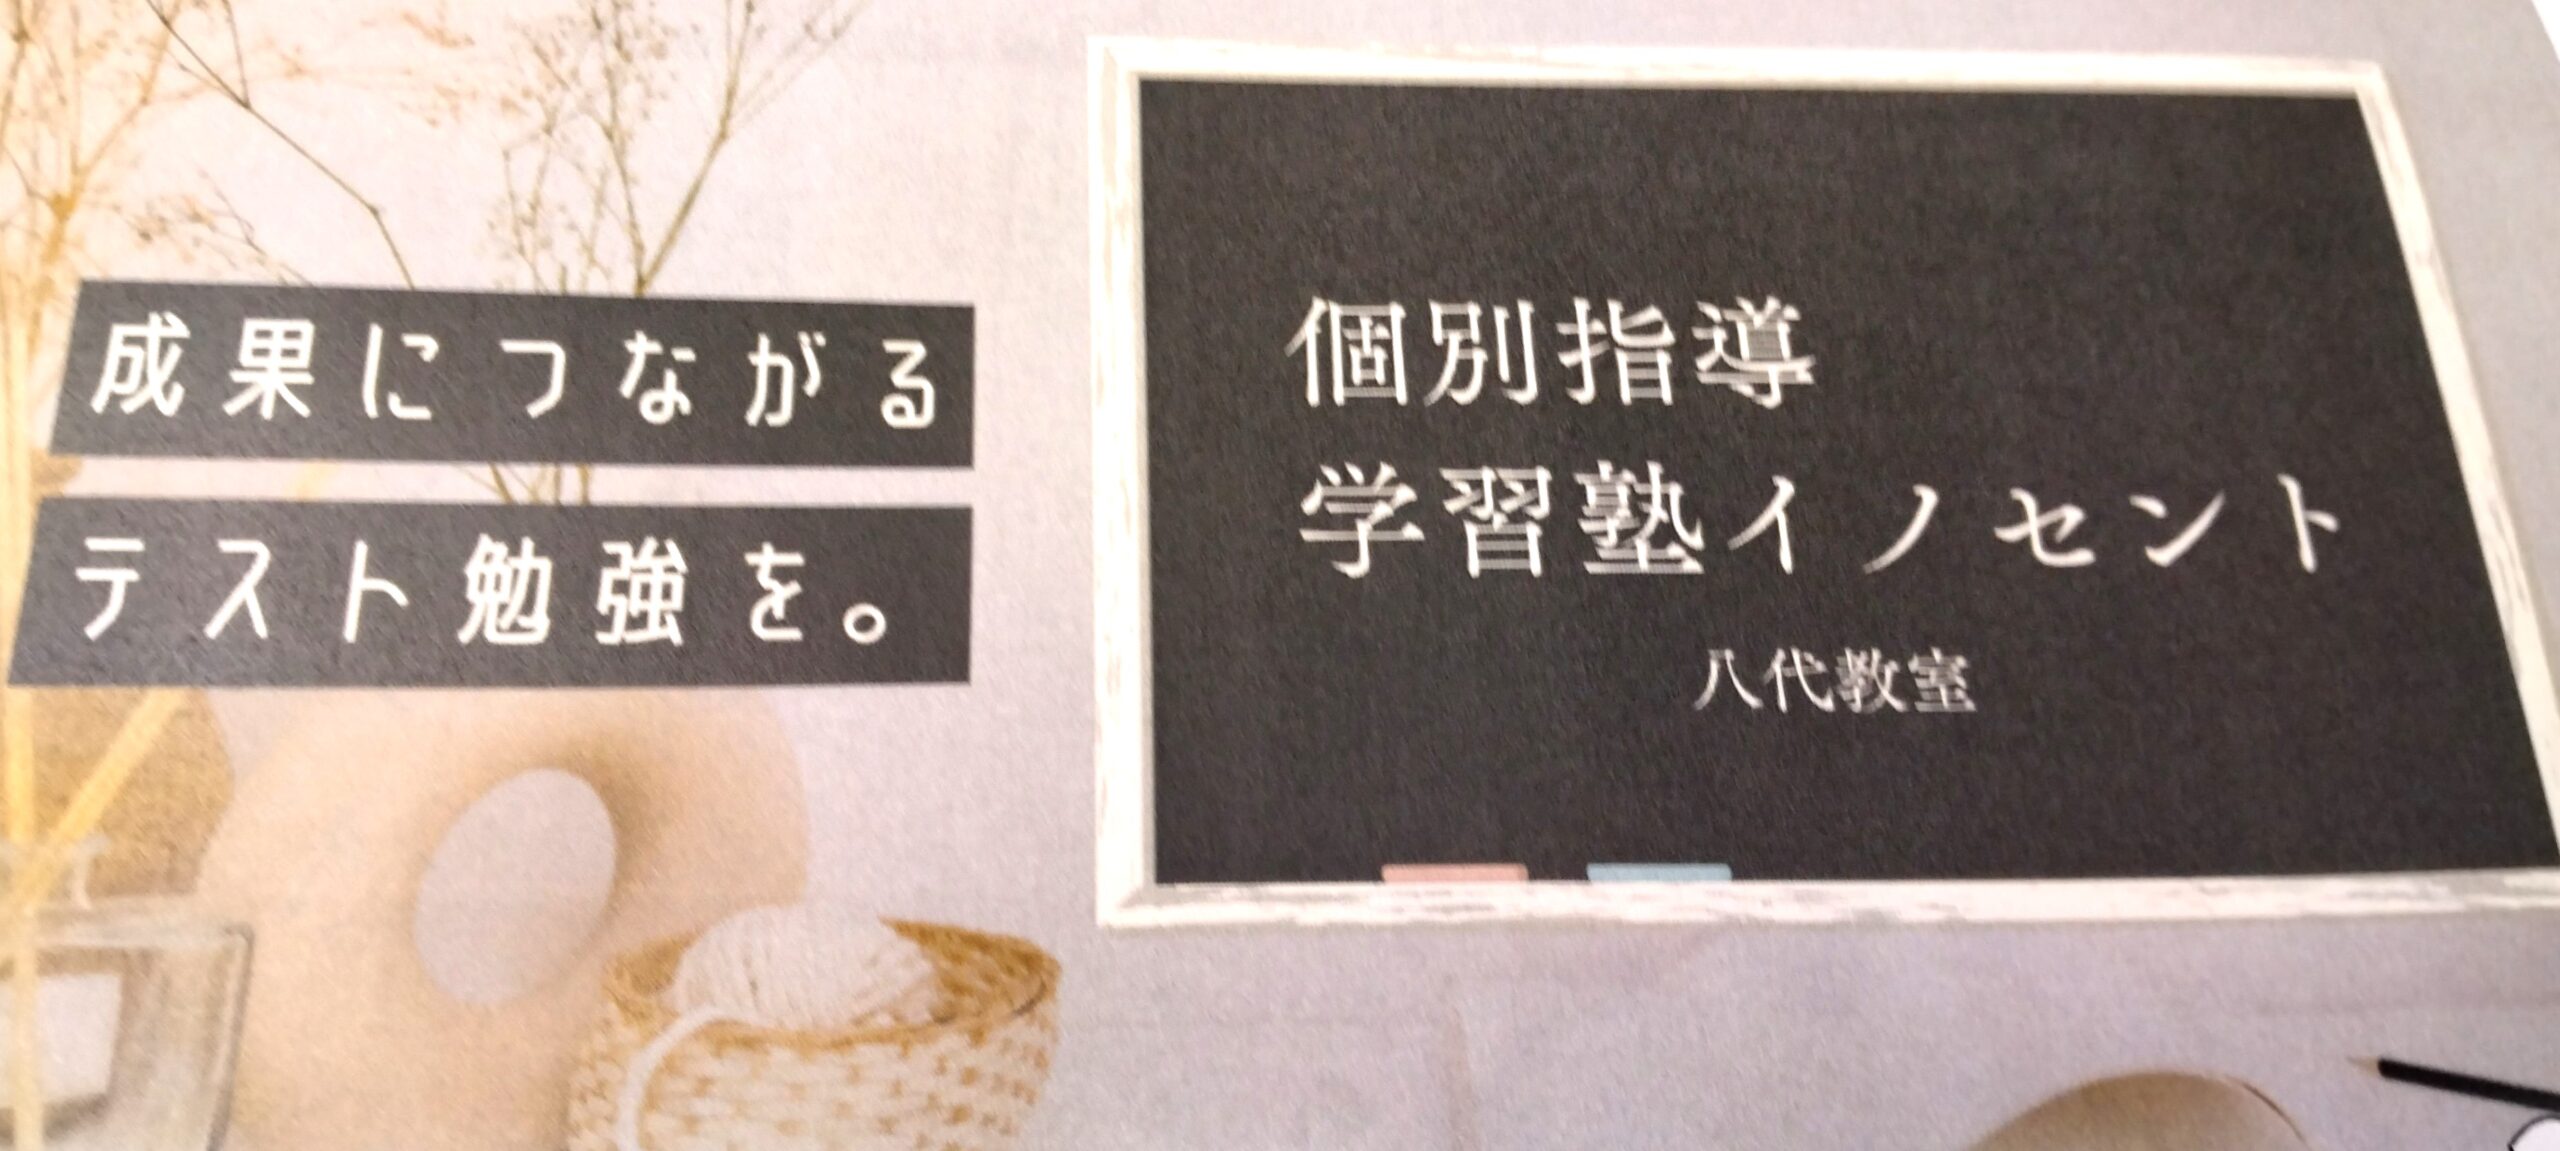 成果につながる
テスト勉強を。
個別指導
学習塾イノセント
八代教室